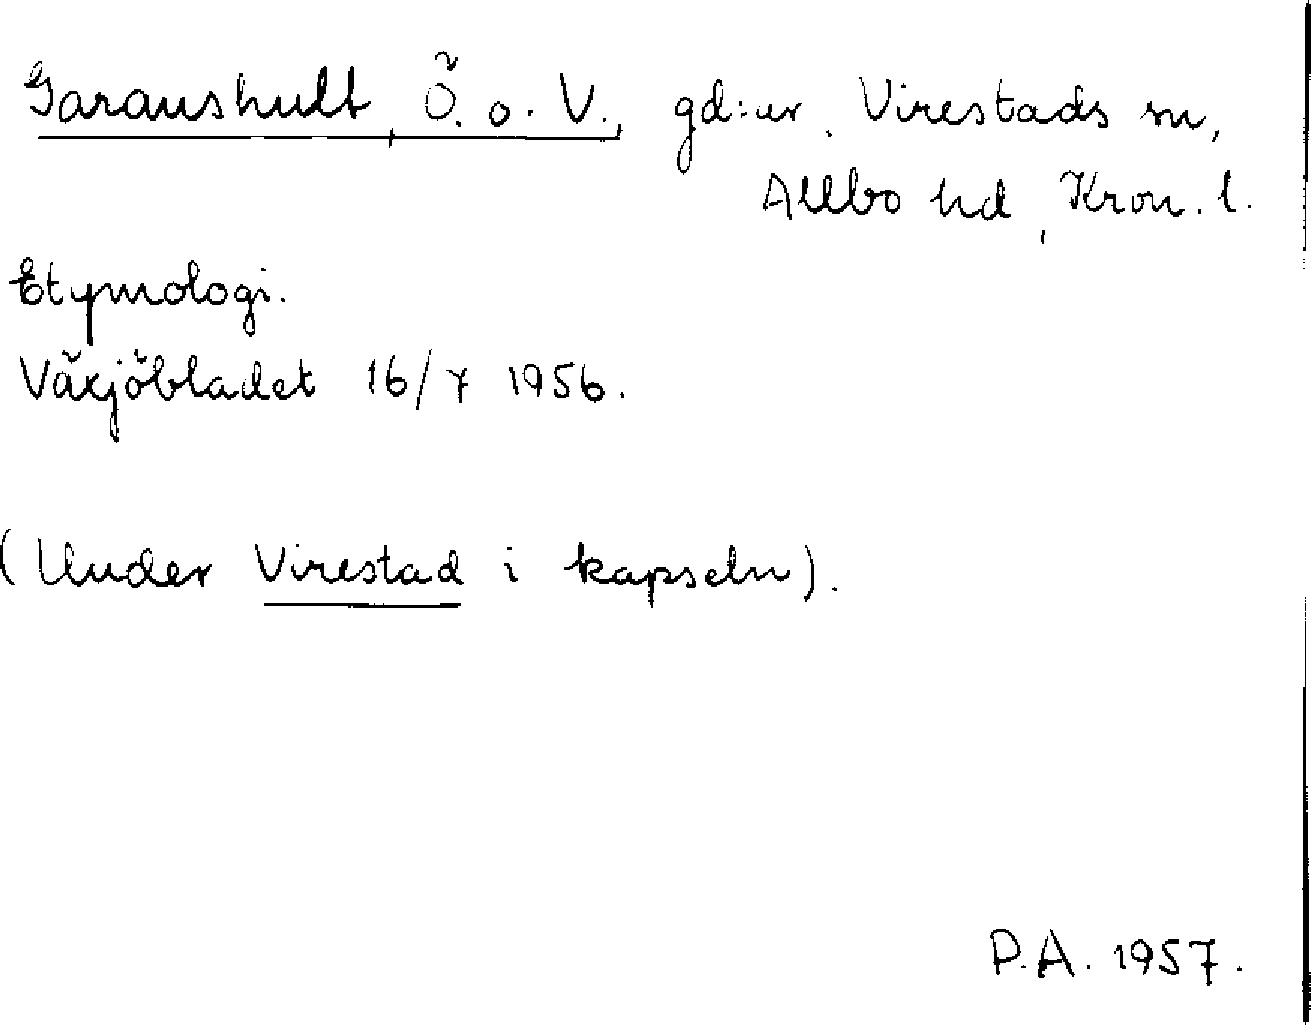 Garanshult, Ö. o. V., gd:ar, Virestads sn,
Allbo hd, Kron. l.
Etymologi.
Växjöbladet 16/7 1956.
(Under Virestad i kapseln).
P.A. 1957.